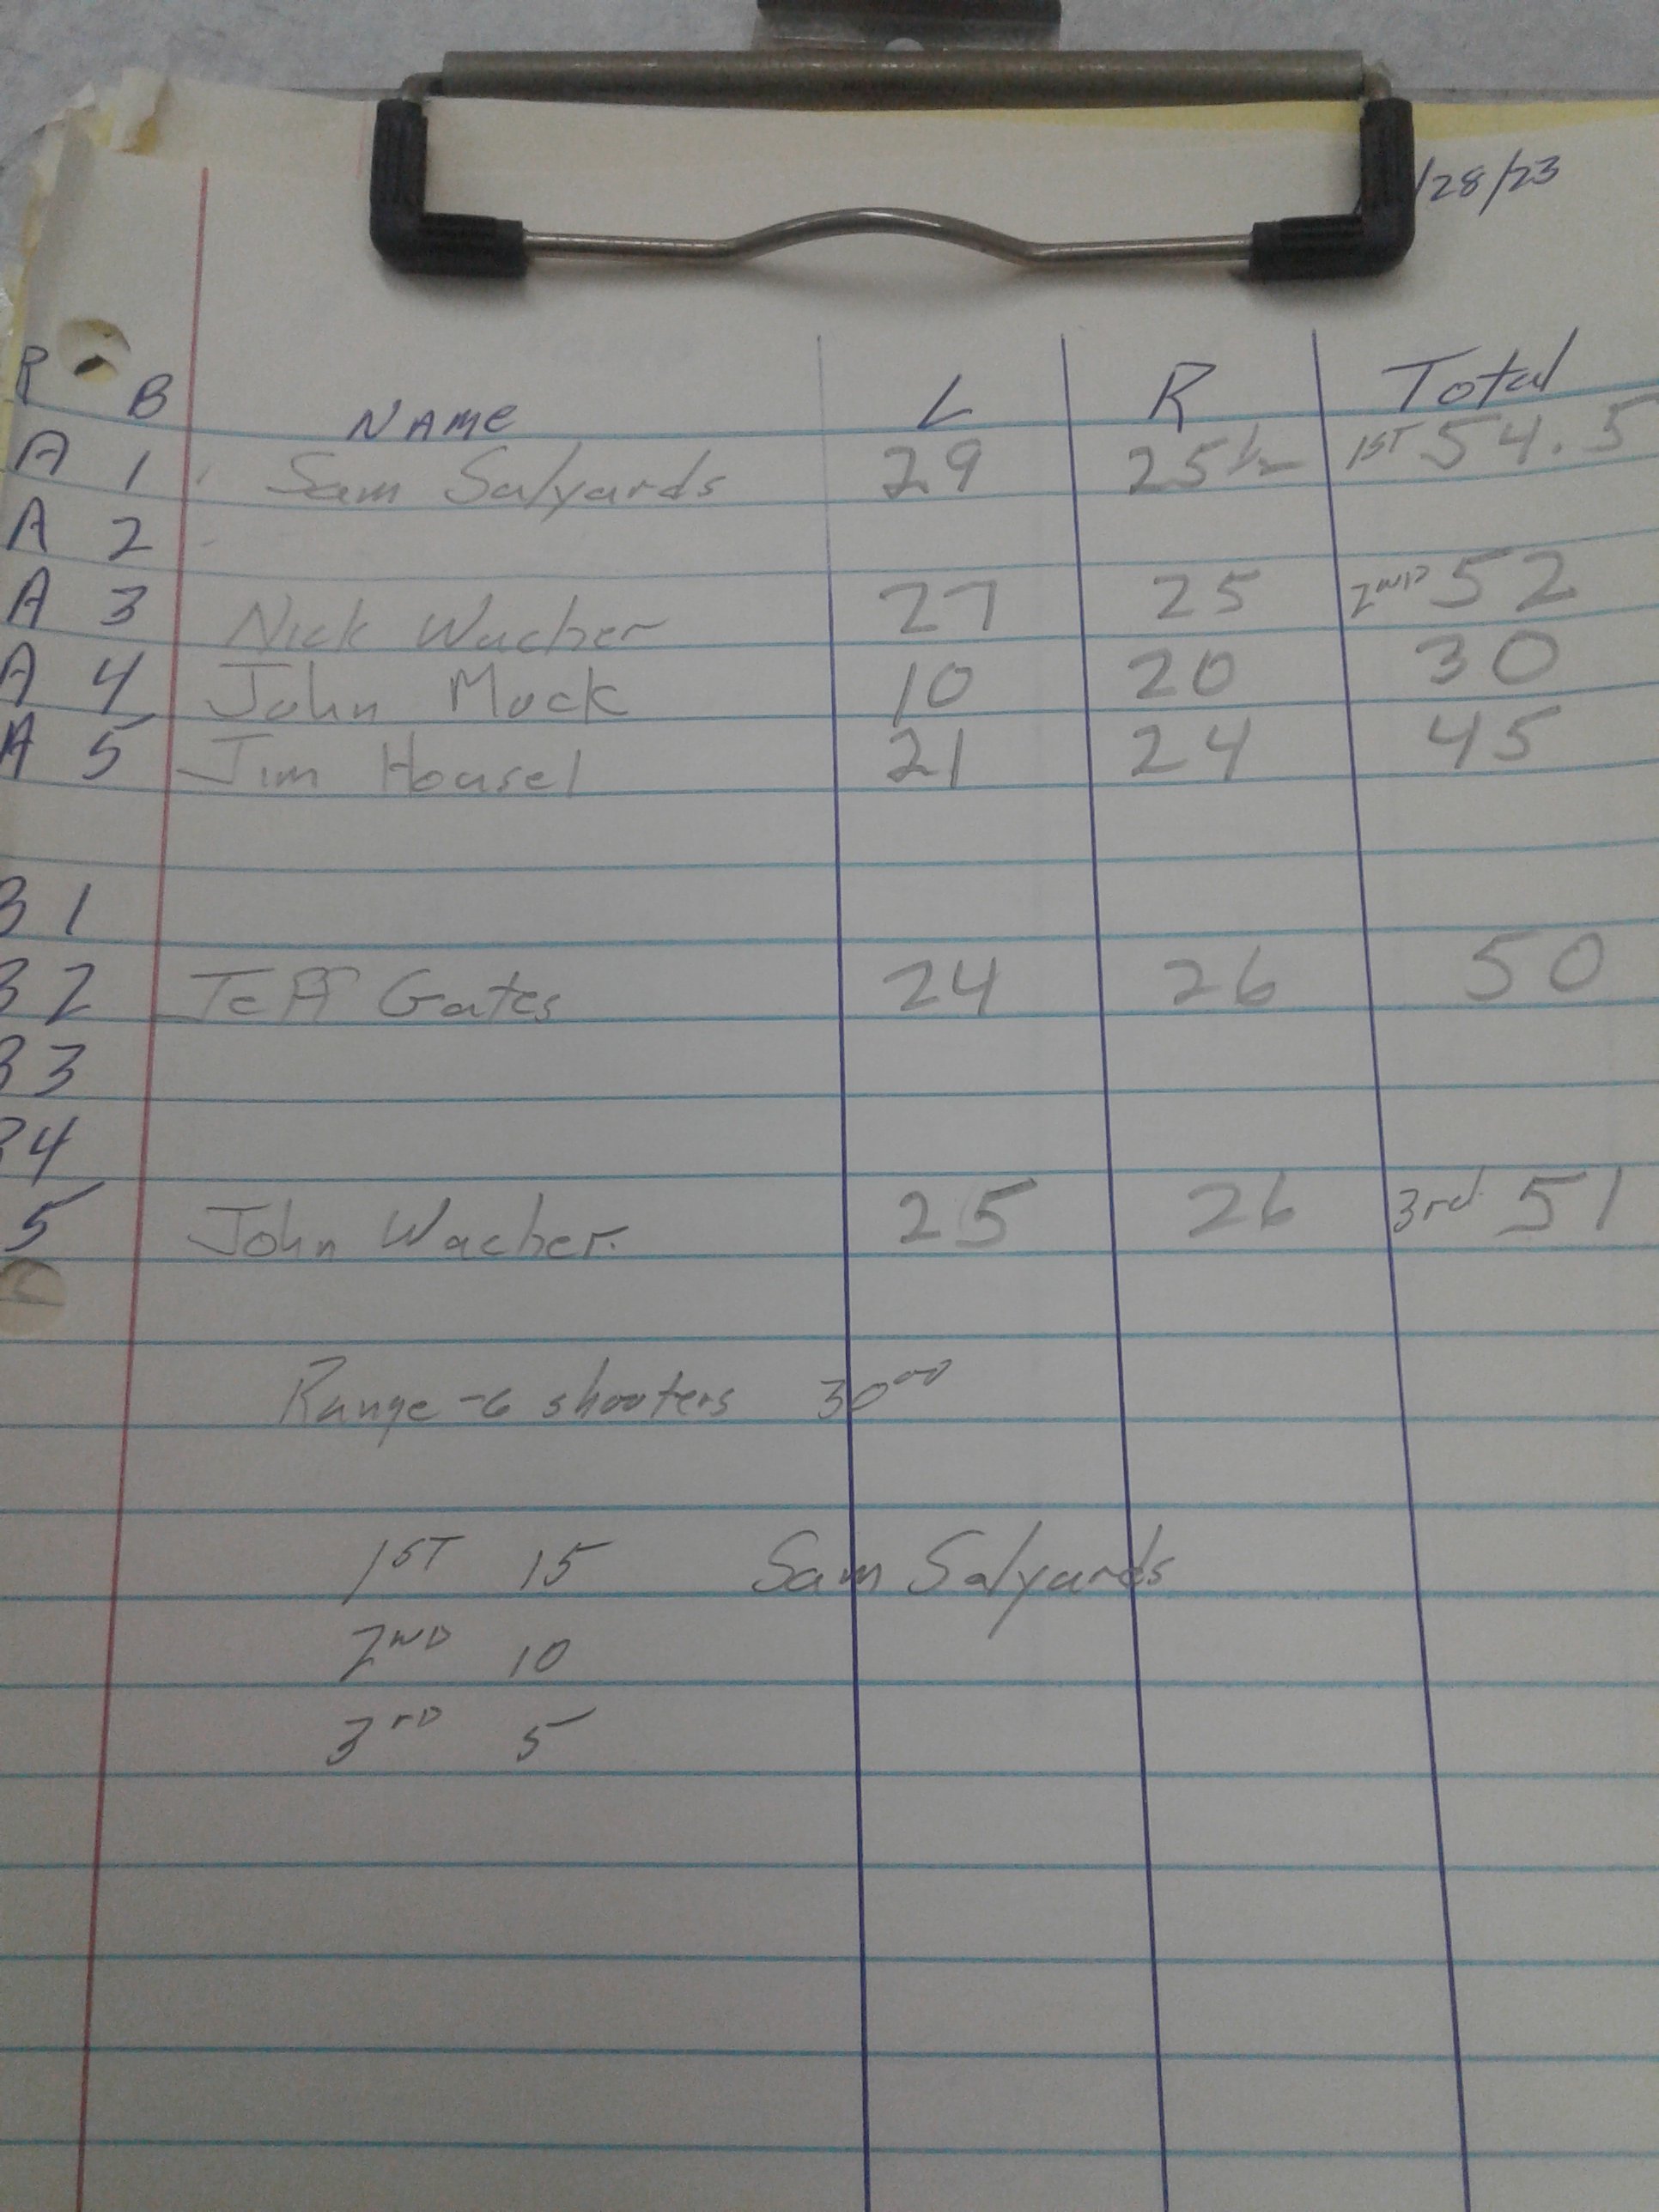 /28/23
R B NAME L R Total
A 1 Sam Salyards 29 25 1/2 1ST 54.5
A 2
A 3 Nick Wacker 27 25 2ND 52
A 4 John Mock 10 20 30
A 5 Jim Housel 21 24 45
B 1
B 2 Jeff Gates 24 26 50
B 3
B 4
5 John Wacker 25 26 3rd 51
Range - 6 shooters 30 00
1ST 15 Sam Salyards
2ND 10
3rD 5